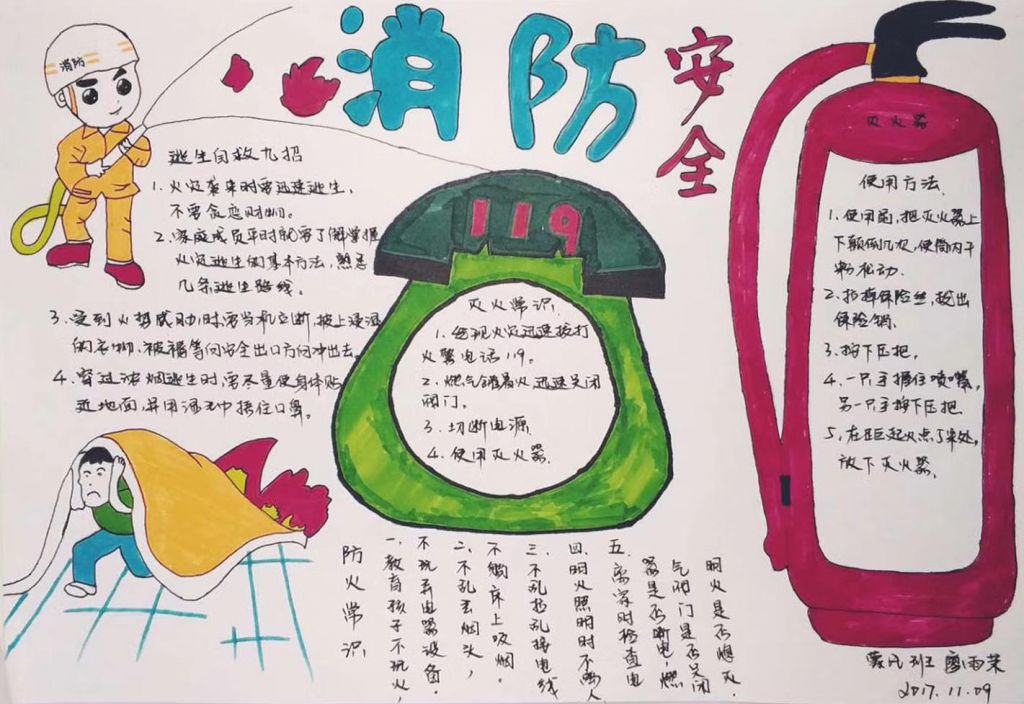 消防
安全
消防
逃生自救九招
1、火灾袭来时要迅速逃生，
不要贪恋财物。
2、家庭成员平时就要了解掌握
火灾逃生的基本方法，熟悉
几条逃生路线。
3、受到火势威胁时，要当机立断，披上浸湿
的衣物、被褥等向安全出口方向冲出去。
4、穿过浓烟逃生时，要尽量使身体贴
近地面，并用湿毛巾捂住口鼻。
119
灭火常识
1、发现火灾迅速拨打
火警电话119。
2、燃气罐着火迅速关闭
阀门。
3、切断电源
4、使用灭火器
灭火器
使用方法
1、使用前，把灭火器上
下颠倒几次，使筒内干
粉松动.
2、拉掉保险丝，拔出
保险销.
3、按下压把，
4、一只手握住喷嘴，
另一只手按下压把
5、在距起火点5米处，
放下灭火器.
防火常识
一、教育孩子不玩火，
不玩弄电器设备.
二、不乱丢烟头，
不躺床上吸烟.
三、不乱拉乱接电线
四、明火照明时不离人
五、离家时检查电
器是否断电，燃
气阀门是否关闭
明火是否熄灭.
班 廖雨荣
2017.11.09